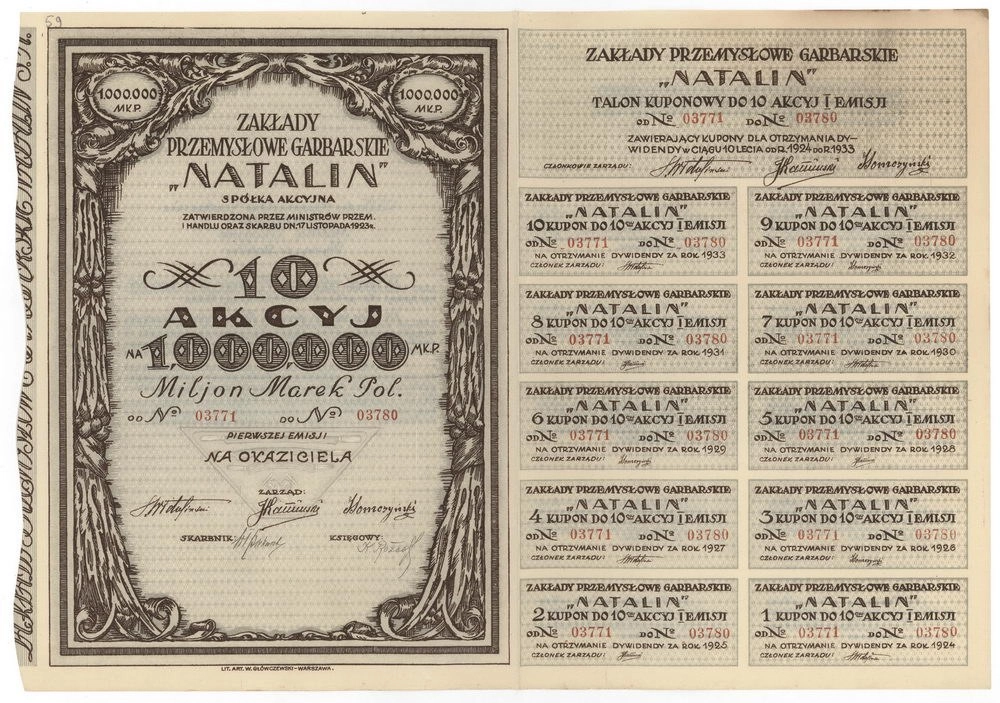 59
1.000.000
MKP.
1.000.000
MKP.
ZAKŁADY
PRZEMYSŁOWE GARBARSKIE
„NATALIN”
SPÓŁKA AKCYJNA
ZATWIERDZONA PRZEZ MINISTRÓW PRZEM.
I HANDLU ORAZ SKARBU DN. 17 LISTOPADA 1923 R.
10
AKCYJ
NA 1,000,000 MK.P.
Miljon Marek Pol.
OD № 03771 DO № 03780
PIERWSZEJ EMISJI
NA OKAZICIELA
ZARZĄD:
SKARBNIK: KSIĘGOWY:
LIT. ART. W. GŁÓWCZEWSKI - WARSZAWA.
ZAKŁADY PRZEMYSŁOWE GARBARSKIE
„NATALIN”
TALON KUPONOWY DO 10 AKCYJ I EMISJI
OD № 03771 DO № 03780
ZAWIERAJĄCY KUPONY DLA OTRZYMANIA DY-
WIDENDY W CIĄGU 10 LECIA OD R. 1924 DO R. 1933
CZŁONKOWIE ZARZĄDU:
ZAKŁADY PRZEMYSŁOWE GARBARSKIE
„NATALIN”
10 KUPON DO 10CIU AKCYJ I EMISJI
OD № 03771 DO № 03780
NA OTRZYMANIE DYWIDENDY ZA ROK 1933
CZŁONEK ZARZĄDU:
ZAKŁADY PRZEMYSŁOWE GARBARSKIE
„NATALIN”
9 KUPON DO 10CIU AKCYJ I EMISJI
OD № 03771 DO № 03780
NA OTRZYMANIE DYWIDENDY ZA ROK 1932
CZŁONEK ZARZĄDU:
ZAKŁADY PRZEMYSŁOWE GARBARSKIE
„NATALIN”
8 KUPON DO 10CIU AKCYJ I EMISJI
OD № 03771 DO № 03780
NA OTRZYMANIE DYWIDENDY ZA ROK 1931
CZŁONEK ZARZĄDU:
ZAKŁADY PRZEMYSŁOWE GARBARSKIE
„NATALIN”
7 KUPON DO 10CIU AKCYJ I EMISJI
OD № 03771 DO № 03780
NA OTRZYMANIE DYWIDENDY ZA ROK 1930
CZŁONEK ZARZĄDU:
ZAKŁADY PRZEMYSŁOWE GARBARSKIE
„NATALIN”
6 KUPON DO 10CIU AKCYJ I EMISJI
OD № 03771 DO № 03780
NA OTRZYMANIE DYWIDENDY ZA ROK 1929
CZŁONEK ZARZĄDU:
ZAKŁADY PRZEMYSŁOWE GARBARSKIE
„NATALIN”
5 KUPON DO 10CIU AKCYJ I EMISJI
OD № 03771 DO № 03780
NA OTRZYMANIE DYWIDENDY ZA ROK 1928
CZŁONEK ZARZĄDU:
ZAKŁADY PRZEMYSŁOWE GARBARSKIE
„NATALIN”
4 KUPON DO 10CIU AKCYJ I EMISJI
OD № 03771 DO № 03780
NA OTRZYMANIE DYWIDENDY ZA ROK 1927
CZŁONEK ZARZĄDU:
ZAKŁADY PRZEMYSŁOWE GARBARSKIE
„NATALIN”
3 KUPON DO 10CIU AKCYJ I EMISJI
OD № 03771 DO № 03780
NA OTRZYMANIE DYWIDENDY ZA ROK 1926
CZŁONEK ZARZĄDU:
ZAKŁADY PRZEMYSŁOWE GARBARSKIE
„NATALIN”
2 KUPON DO 10CIU AKCYJ I EMISJI
OD № 03771 DO № 03780
NA OTRZYMANIE DYWIDENDY ZA ROK 1925
CZŁONEK ZARZĄDU:
ZAKŁADY PRZEMYSŁOWE GARBARSKIE
„NATALIN”
1 KUPON DO 10CIU AKCYJ I EMISJI
OD № 03771 DO № 03780
NA OTRZYMANIE DYWIDENDY ZA ROK 1924
CZŁONEK ZARZĄDU: